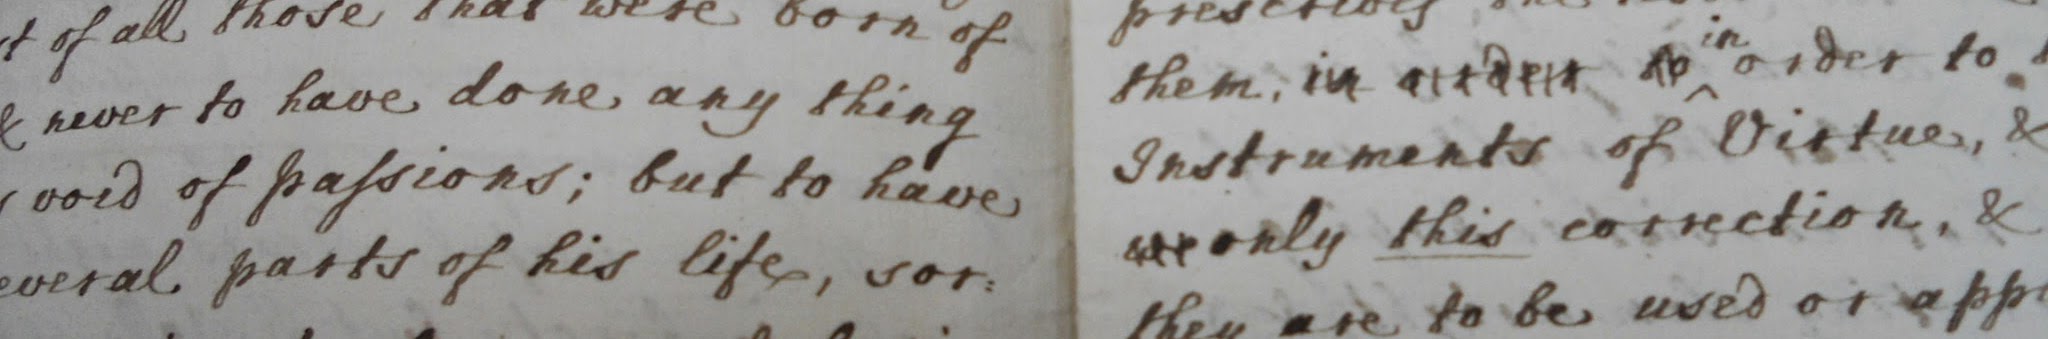 of all those that were born of
& never to have done any thing
void of paſsions; but to have
everal parts of his life, sor:
them, in order to
Instruments of Virtue, &
only this correction, &
they are to be used or